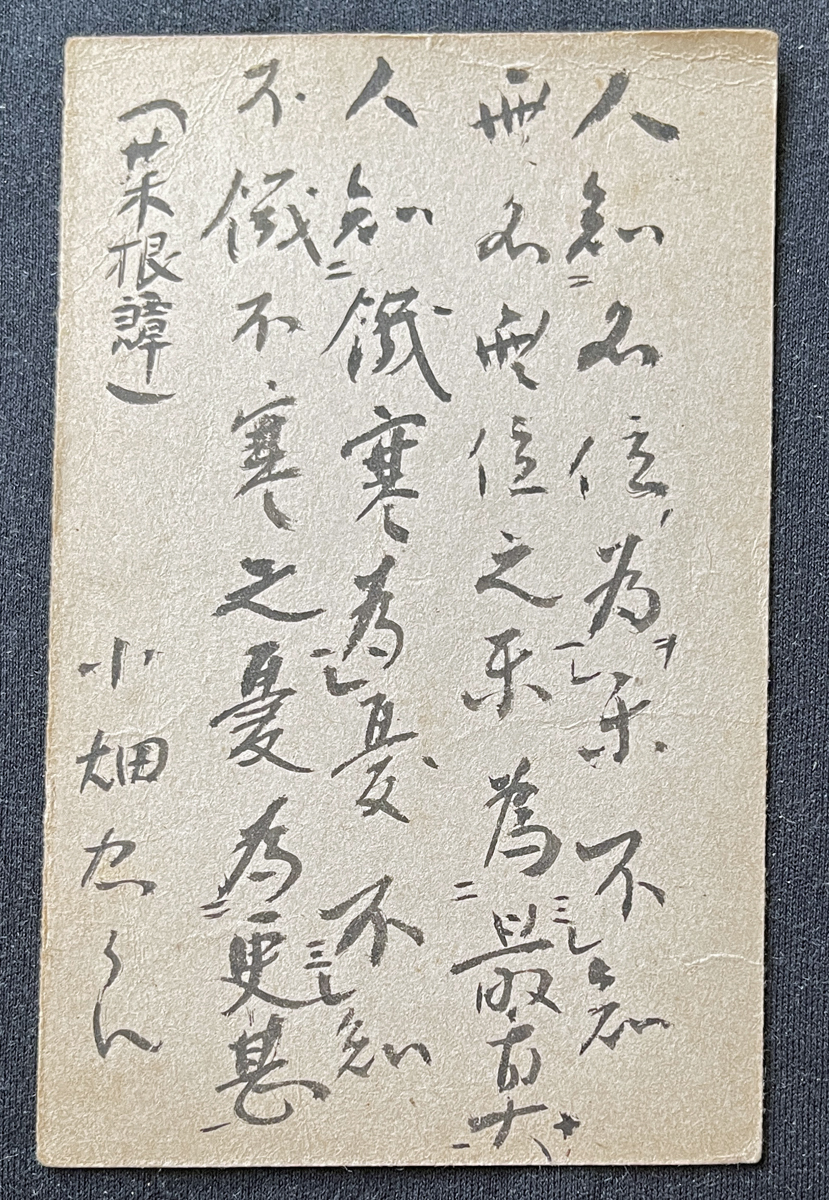 人知名位為楽不知
無名無位之楽為最真
人知饑寒為憂不知
不饑不寒之憂為更甚
(菜根譚)
小畑